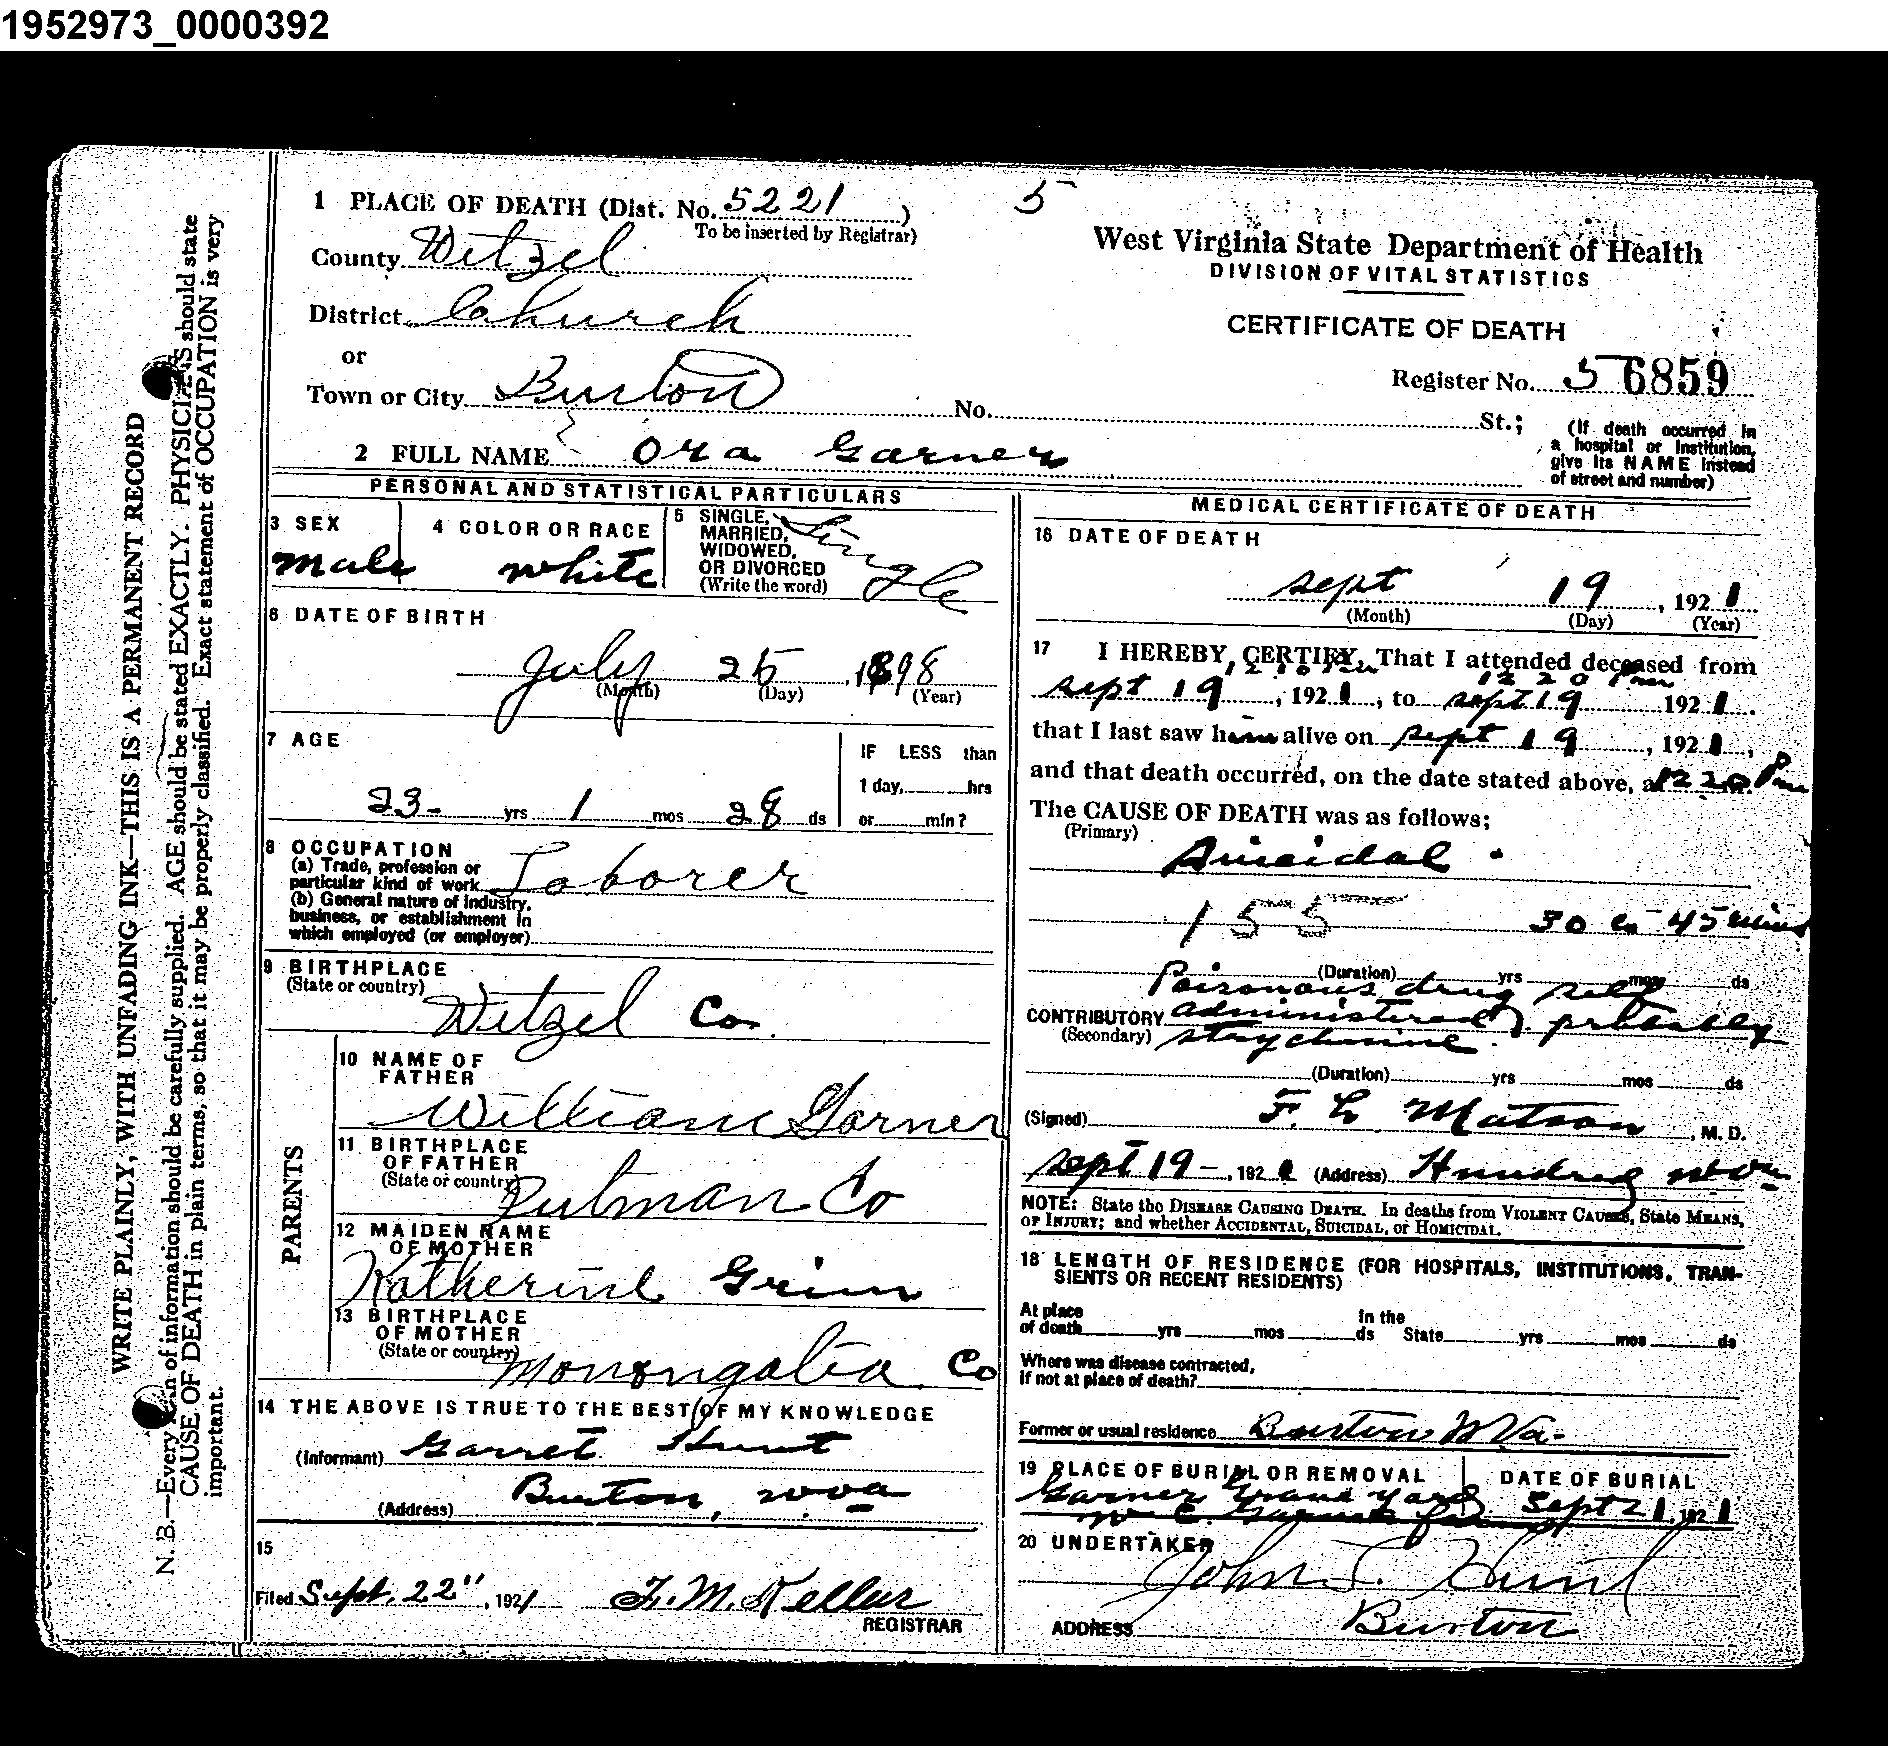 1952973_0000392
1 PLACE OF DEATH (Dist. No. 5221)
To be inserted by Registrar)
5
County Wetzel
District Church
or
Town or City Burton No. St.;
West Virginia State Department of Health
DIVISION OF VITAL STATISTICS
CERTIFICATE OF DEATH
Register No. 5 6859
(If death occurred in
a hospital or institution,
give its NAME instead
of street and number)
2 FULL NAME Ora Garner
PERSONAL AND STATISTICAL PARTICULARS
3 SEX
male
4 COLOR OR RACE
white
5 SINGLE,
MARRIED,
WIDOWED,
OR DIVORCED
(Write the word)
Single
6 DATE OF BIRTH
July 25, 1898
(Month) (Day) (Year)
7 AGE
23 yrs 1 mos 28 ds
IF LESS than
1 day, hrs
or min?
8 OCCUPATION
(a) Trade, profession or
particular kind of work Laborer
(b) General nature of industry,
business, or establishment in
which employed (or employer)
9 BIRTHPLACE
(State or country)
Wetzel Co.
PARENTS
10 NAME OF
FATHER
William Garner
11 BIRTHPLACE
OF FATHER
(State or country)
Putman Co
12 MAIDEN NAME
OF MOTHER
Katherine Grim
13 BIRTHPLACE
OF MOTHER
(State or country)
Monongalia Co
14 THE ABOVE IS TRUE TO THE BEST OF MY KNOWLEDGE
(Informant) Garret Hunt
(Address) Burton, wva
15
Filed Sept. 22", 1921 F. M. Kellar
REGISTRAR
MEDICAL CERTIFICATE OF DEATH
16 DATE OF DEATH
sept 19, 1921
(Month) (Day) (Year)
17 I HEREBY CERTIFY, That I attended deceased from
12 10 Pm 12 20 Pm
sept 19, 1921, to sept 19 1921.
that I last saw him alive on sept 19, 1921,
and that death occurred, on the date stated above, at 12 20 Pm
The CAUSE OF DEATH was as follows;
(Primary)
Suicidal.
155 30 to 45 mins
(Duration) yrs mos ds
Poisonous drug self
CONTRIBUTORY administered, probably
(Secondary) strychnine.
(Duration) yrs mos ds
(Signed) F. L. Matson, M. D.
sept 19-, 1921 (Address) Hundred wva
NOTE: State the DISEASE CAUSING DEATH. In deaths from VIOLENT CAUSES, State MEANS,
OF INJURY; and whether ACCIDENTAL, SUICIDAL, or HOMICIDAL.
18 LENGTH OF RESIDENCE (FOR HOSPITALS, INSTITUTIONS, TRAN-
SIENTS OR RECENT RESIDENTS)
At place
of death yrs mos ds
In the
State yrs mos ds
Where was disease contracted,
if not at place of death?
Former or usual residence Burton W Va.
19 PLACE OF BURIAL OR REMOVAL
Garner Grave Yard
DATE OF BURIAL
Sept 21, 1921
20 UNDERTAKER
John S. Hunt
ADDRESS Burton
WRITE PLAINLY, WITH UNFADING INK—THIS IS A PERMANENT RECORD
N. B.—Every item of information should be carefully supplied. AGE should be stated EXACTLY. PHYSICIANS should state
CAUSE OF DEATH in plain terms, so that it may be properly classified. Exact statement of OCCUPATION is very
important.